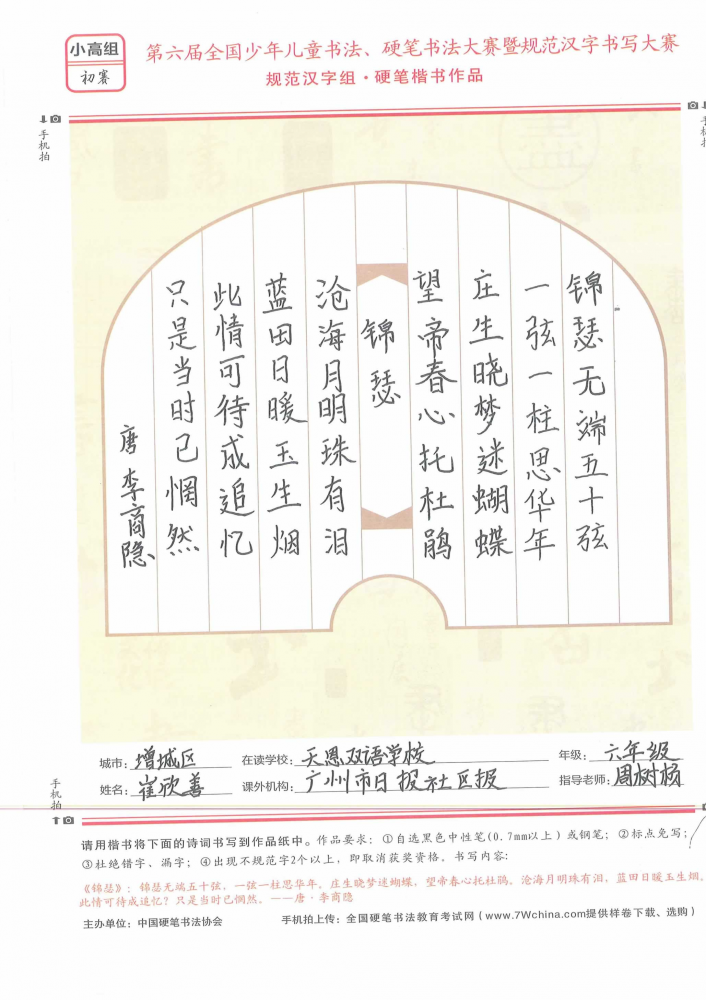 小高组
初赛
第六届全国少年儿童书法、硬笔书法大赛暨规范汉字书写大赛
规范汉字组·硬笔楷书作品
手机拍
手机拍
锦瑟无端五十弦
一弦一柱思华年
庄生晓梦迷蝴蝶
望帝春心托杜鹃
锦瑟
沧海月明珠有泪
蓝田日暖玉生烟
此情可待成追忆
只是当时已惘然
唐 李商隐
城市：增城区 在读学校：天恩双语学校 年级：六年级
姓名：崔欣善 课外机构：广州市日报社区报 指导老师：周树杨
手机拍
请用楷书将下面的诗词书写到作品纸中。作品要求：①自选黑色中性笔(0.7mm以上)或钢笔；②标点免写；
③杜绝错字、漏字；④出现不规范字2个以上，即取消获奖资格。书写内容：
《锦瑟》：锦瑟无端五十弦，一弦一柱思华年。庄生晓梦迷蝴蝶，望帝春心托杜鹃。沧海月明珠有泪，蓝田日暖玉生烟。
此情可待成追忆？只是当时已惘然。——唐·李商隐
主办单位：中国硬笔书法协会 手机拍上传：全国硬笔书法教育考试网（www.7Wchina.com提供样卷下载、选购）